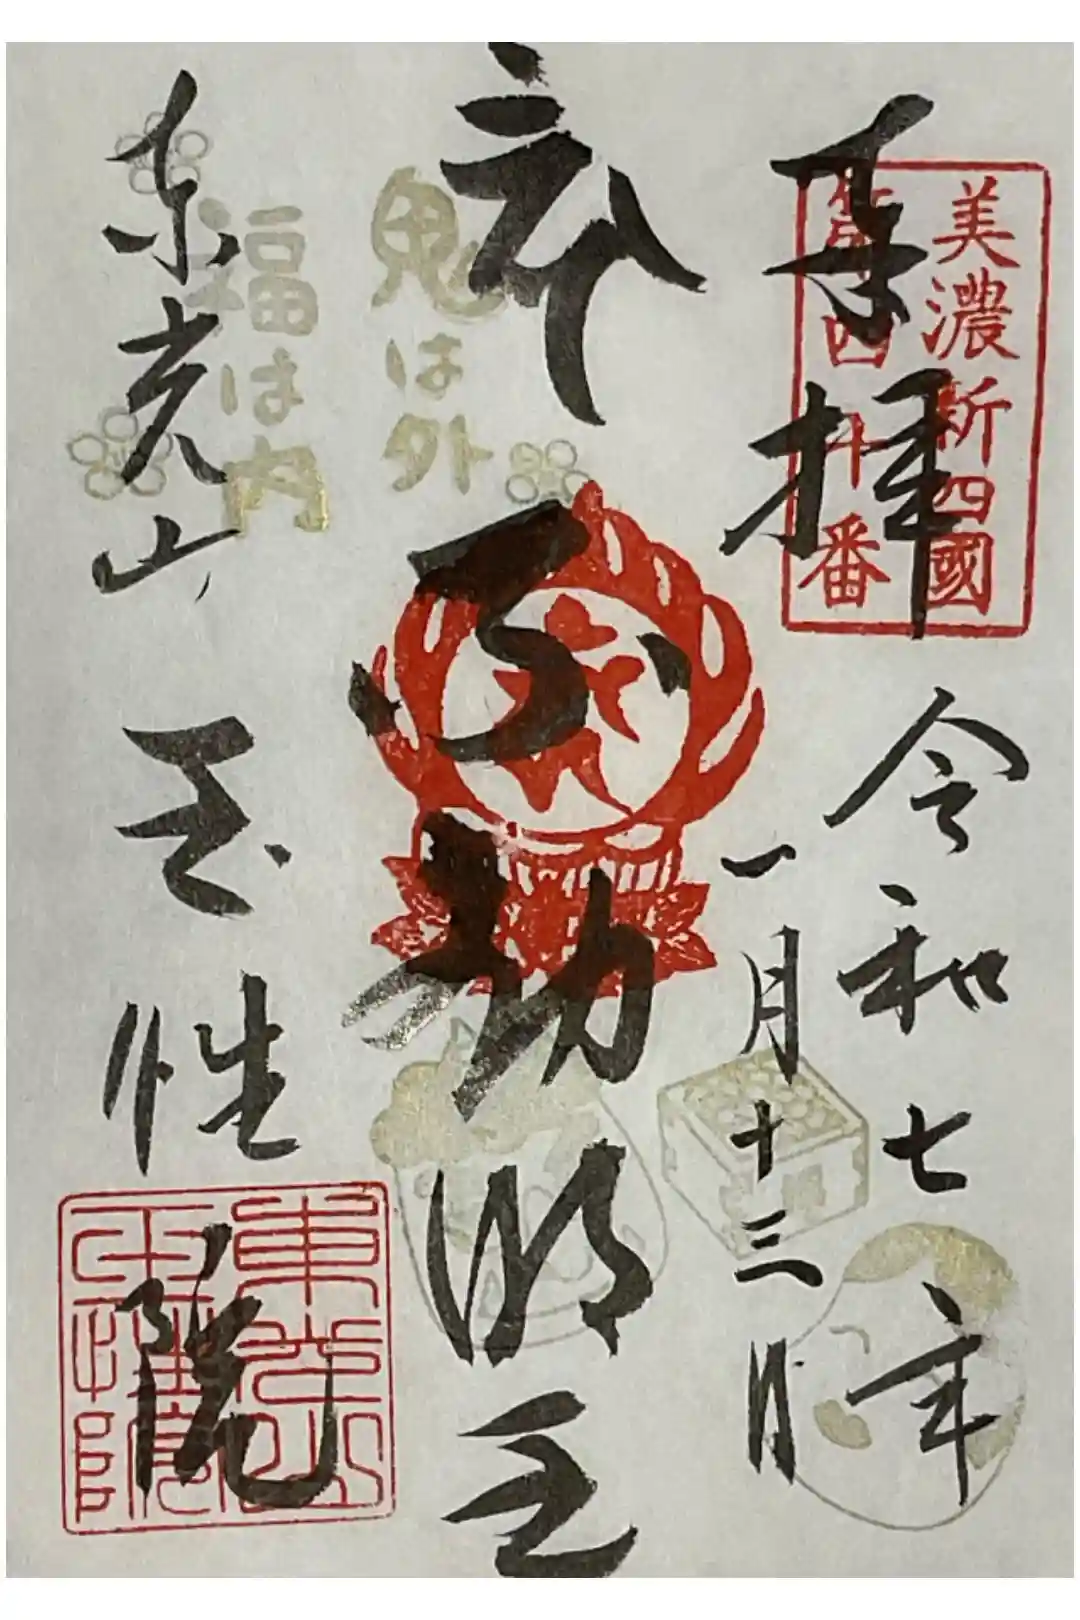 奉拝
美濃新四國
第四十番
令和七年
一月十三日
赤不動明王
鬼は外
福は内
東光山 玉性院
東光山
玉性院